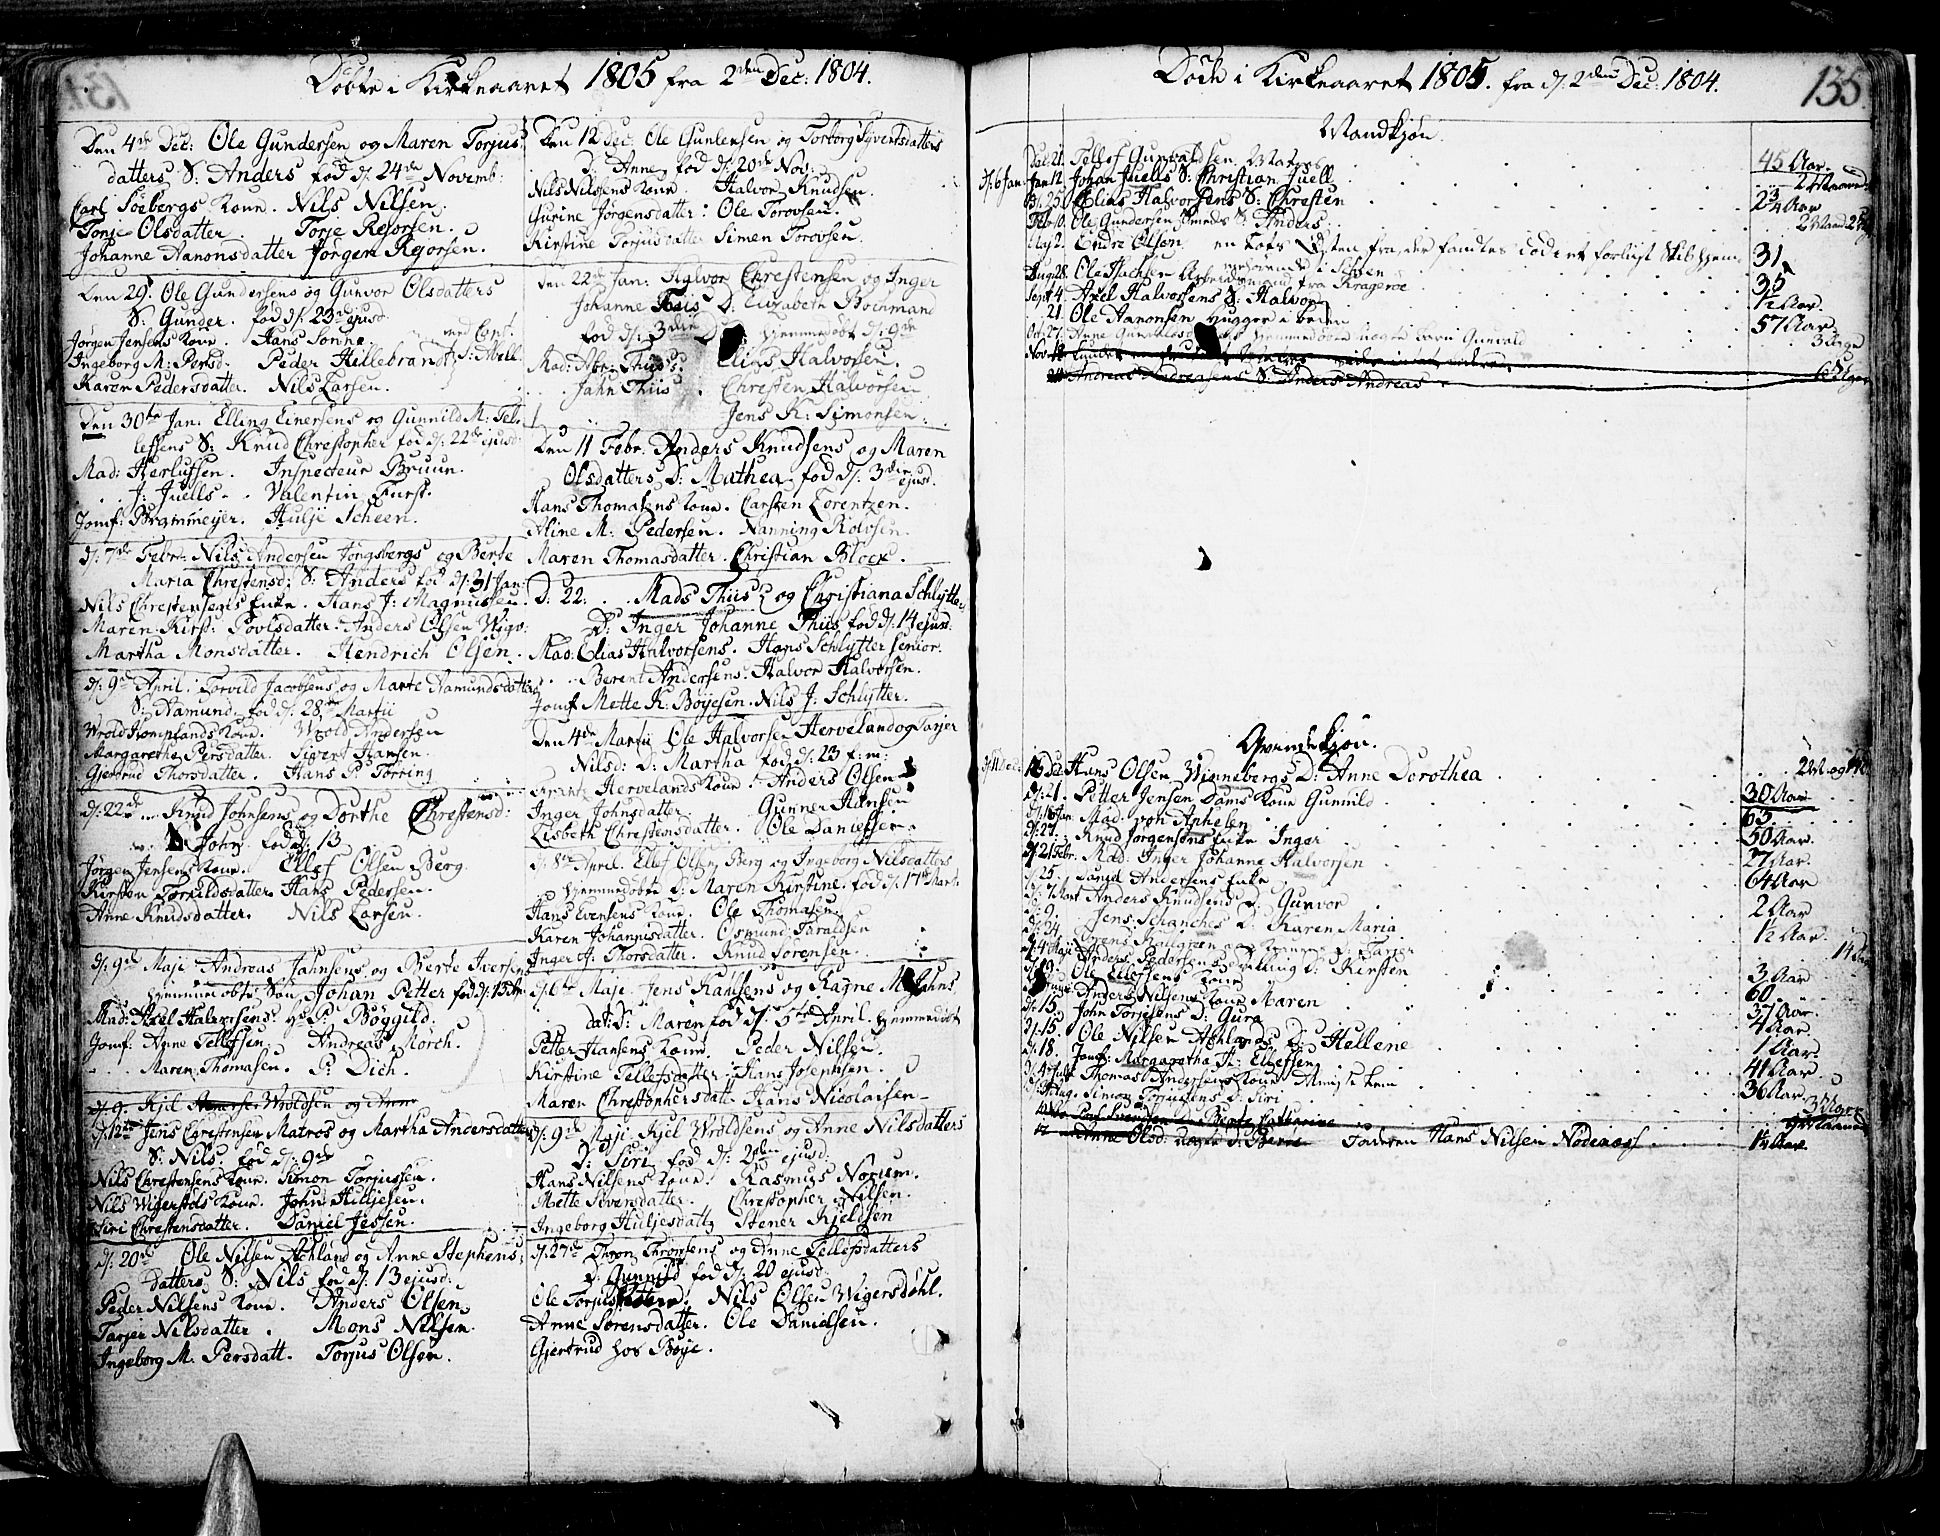 Døbte i Kirkeaaret 1805 fra 2den Dec: 1804.
Den 4de Dec: Ole Gundersen og Maren Torjus
datters S: Anders fød d: 24de Novemb:
Carl Soebergs Kone. Nils Nilsen.
Tonje Olsdatter. Torje Rejorsen.
Johanne Aanonsdatter Jørgen Rejorsen.
Den 29. Ole Gundersens og Gunvor Olsdatters
S: Gunder. fød d: 23de ejusd.
Jørgen Jensens Kone. Hans Tonne.
Ingeborg M: Persd. Peder Hillebrandtz
Karen Pedersdatter. Nils Larsen.
Den 30te Jan. Elling Einersens og Gunnild M: Tel-
lefsens S: Knud Christopher fød d: 22de ejusd:
Mad: Herlufsen. Inspecteur Bruun.
J: Juells. Valentin Furst.
Jomf: Brammeyer. Hulje Scheen.
d: 7de Febr: Nils Andersen Jongsbergs og Berte
Maria Chrestensd: S: Anders fød d: 31 Jan:
Nils Chrestensens Enke. Hans J: Magnussen.
Maren Kirst: Povlsdatter. Anders Olsen Wigv:
Martha Monsdatter. Hendrich Olsen.
d: 9de April. Torvild Jacobsens og Marte Aamundsdatters
S: Aamund. fød d: 28de Martii
Wrold Komplands Kone. Wrold Andersen
Margarethe Persdatter. Sivert Hansen.
Gjertrud Thorsdatter. Hans P. Torring
d: 22de Knud Johnsens og Dorthe Chrestensd:
S: John. fød d: 13
Jørgen Jensens Kone. Ellef Olsen Berg.
Kirsten Torkildsdatter Hans Pedersen.
Anne Knudsdatter. Nils Larsen.
d: 9de Maji Andreas Jahnsens og Berte Iversens
hjemmedøbte Søn Johan Petter fød d: 13
Mad: Axel Halvorsens. Hr P: Bøggild.
Jomf: Anne Tellefsen. Andreas Mörch.
Maren Thomasen. P: Dich.
d: 9. Kjel Wroldsen og Anne
d: 12te Jens Chrestensen Matros og Martha Andersdatters
S: Nils. fød d: 9de
Nils Christensens Kone. Simon Torjussen.
Nils Wigersdols Kone. John Huljesen.
Siri Chrestensdatter. Daniel Jessen.
d: 20de Ole Nilsen Achland og Anne Stephens-
datters S: Nils fød d: 13 ejusd:
Peder Nilsens Kone. Anders Olsen
Tarjer Nilsdatter. Mons Nilsen.
Ingeborg M: Persdatt. Torjus Olsen.
Den 12 Dec: Ole Gundersen og Torborg Syvertsdatters
D: Anne, fød d: 20de Nov:
Nils Nilssens Kone. Halvor Knudsen.
Gurine Jörgensdatter: Ole Torovsen.
Kirstine Torjusdatter Simen Torovsen.
Den 22de Jan: Halvor Chrestensen og Inger
Johanne Thiis D: Elizabeth Bochmand
fød d: 3die hjemmedøbt d: 9de
Mad: Abr: Thiis. Elias Halvorsen.
Jahn Thiis. Chresten Halvorsen
Jens K: Simonsen.
Den 11 Febr. Anders Knudsens og Maren
Olsdatters D: Mathea. fød d: 3die ejusd.
Hans Thomasens Kone. Carsten Lorentzen.
Aline M: Pedersen. Nanning Rolvsen.
Maren Thomasdatter. Christian Block.
D: 22: Mads Thiis og Christiana Schlytter
D: Inger Johanne Thiis fød d: 14 ejusd:
Mad: Elias Halvorsens. Hans Schlytter senior.
Berent Andersens. Halvor Halvorsen.
Jomf Mette K: Böyesen. Nils J: Schlytter.
Den 4de Martii Ole Halvorsen Herveland og Tarjer
Nilsd: D: Martha fød d: 23 f: m:
Hervelands Kone. Anders Olsen
Inger Johnsdatter. Gunner Hansen
Lisbeth Chrestensdatter. Ole Danielsen.
d: 8de April. Ellef Olsen Berg og Ingeborg Nilsdatters
hjemmedøbte D: Maren Kirstine. fød d: 17de Mart:
Hans Evensens Kone. Ole Thomasen.
Karen Johannisdatter. Osmund Taraldsen
Inger A: Thorsdatter. Knud Sörensen.
d: 6te Maji. Jens Hansens og Ragne M: Jahns
dat: D: Maren fød d: 5te April. hjemmedøbt
Petter Hansens Kone. Peder Nilsen.
Kirstine Tellefsdatter. Hans Josephsen.
Maren Chrestophersdatt: Hans Nicolaisen
d: 9de Maji. Kjel Wroldsens og Anne Nilsdatters
D: Siri. fød d: 2den ejusd:
Hans Nilsens Kone. Rasmus Norum.
Mette Siversdatter. Christopher Nilsen.
Ingeborg Huljesdatt: Stener Kjeldsen
d: 27de Thron Thronsens og Anne Tellefsdatters
D: Gunnild fød d: 20 ejusd:
Ole Torjus Nils Olsen Wigersdøhl.
Anne Sørensdatter. Ole Danielsen.
Gjertrud hos Böye.
Døde i Kirkeaaret 1805. fra d: 2den Dec: 1804.
135.
Mandkjøn.
Dec: 21. Tellef Gunvaldsen. Matros 45 Aar.
d: 6 Jan: Jan: 12. Johan Juells S: Christian Juell
D: 25. Elias Halvorsens S: Chresten 2 3/4 Aar
Feb: 10. Ole Gundersen Smeds S: Anders.
Maj 2. Endre Olsen en Lods Østen fra, der fandtes død i et forliist Skib hjemme 31
hørende i Skien
Aug: 28. Ole Isachsen Arbeidsmand fra Krageröe 35
Sept: 4. Axel Halvorsens S: Halvor 1/2 Aar
21. Ole Aanonsen Hugger i Leiren 57 Aar
Oct: 27. Anne Gunvalds hjemmedøbt uægte barn Gunvald 3 Uger
Nov: 18
24 Andreas Andreasens S: Anders Andreas
Qvindekjøn.
d: 11 Dec: 16 Dec Hans Olsen Winnebergs D: Anne Dorothea
d: 21. Petter Jensen Dams Kone Gunnild 30 Aar
d: 16 Jan: Mad. von Aphelen 63
d: 27. Knud Jörgensens Enke Inger 50 Aar.
d: 21 Febr. Mad: Inger Johanne Halvorsen 27 Aar.
d: 25. Daniel Andersens Enke 64 Aar
d: 7 Mart Anders Knudsens D: Gunvor 2 Aar
d: 9. Jens Schanches D: Karen Maria 1 1/2 Aar.
d: 24.
d: 4 Maji Anders Pedersens D: Kirsten 3 Aar
d: 19. Ole Ellefsens Kone 60
Anders Nilsens Kone Maren 37 Aar.
d: 15. John Torjesens D: Gura 4 Aar.
d: 15. Ole Nilsen Achlands D: Hellene 1 Aar.
d: 18. Jomf: Margaretha H: Ellefsen 41 Aar.
d: 4 Juli Thomas Andersens Kone 36 Aar
Aug. Simon Torjusens D: Siri 3 Uger
D: Berte Catharine
12 Anne Olsd: uægte D: Berte Faderen Hans Nilsen Nödenæss 1 1/2 Aar